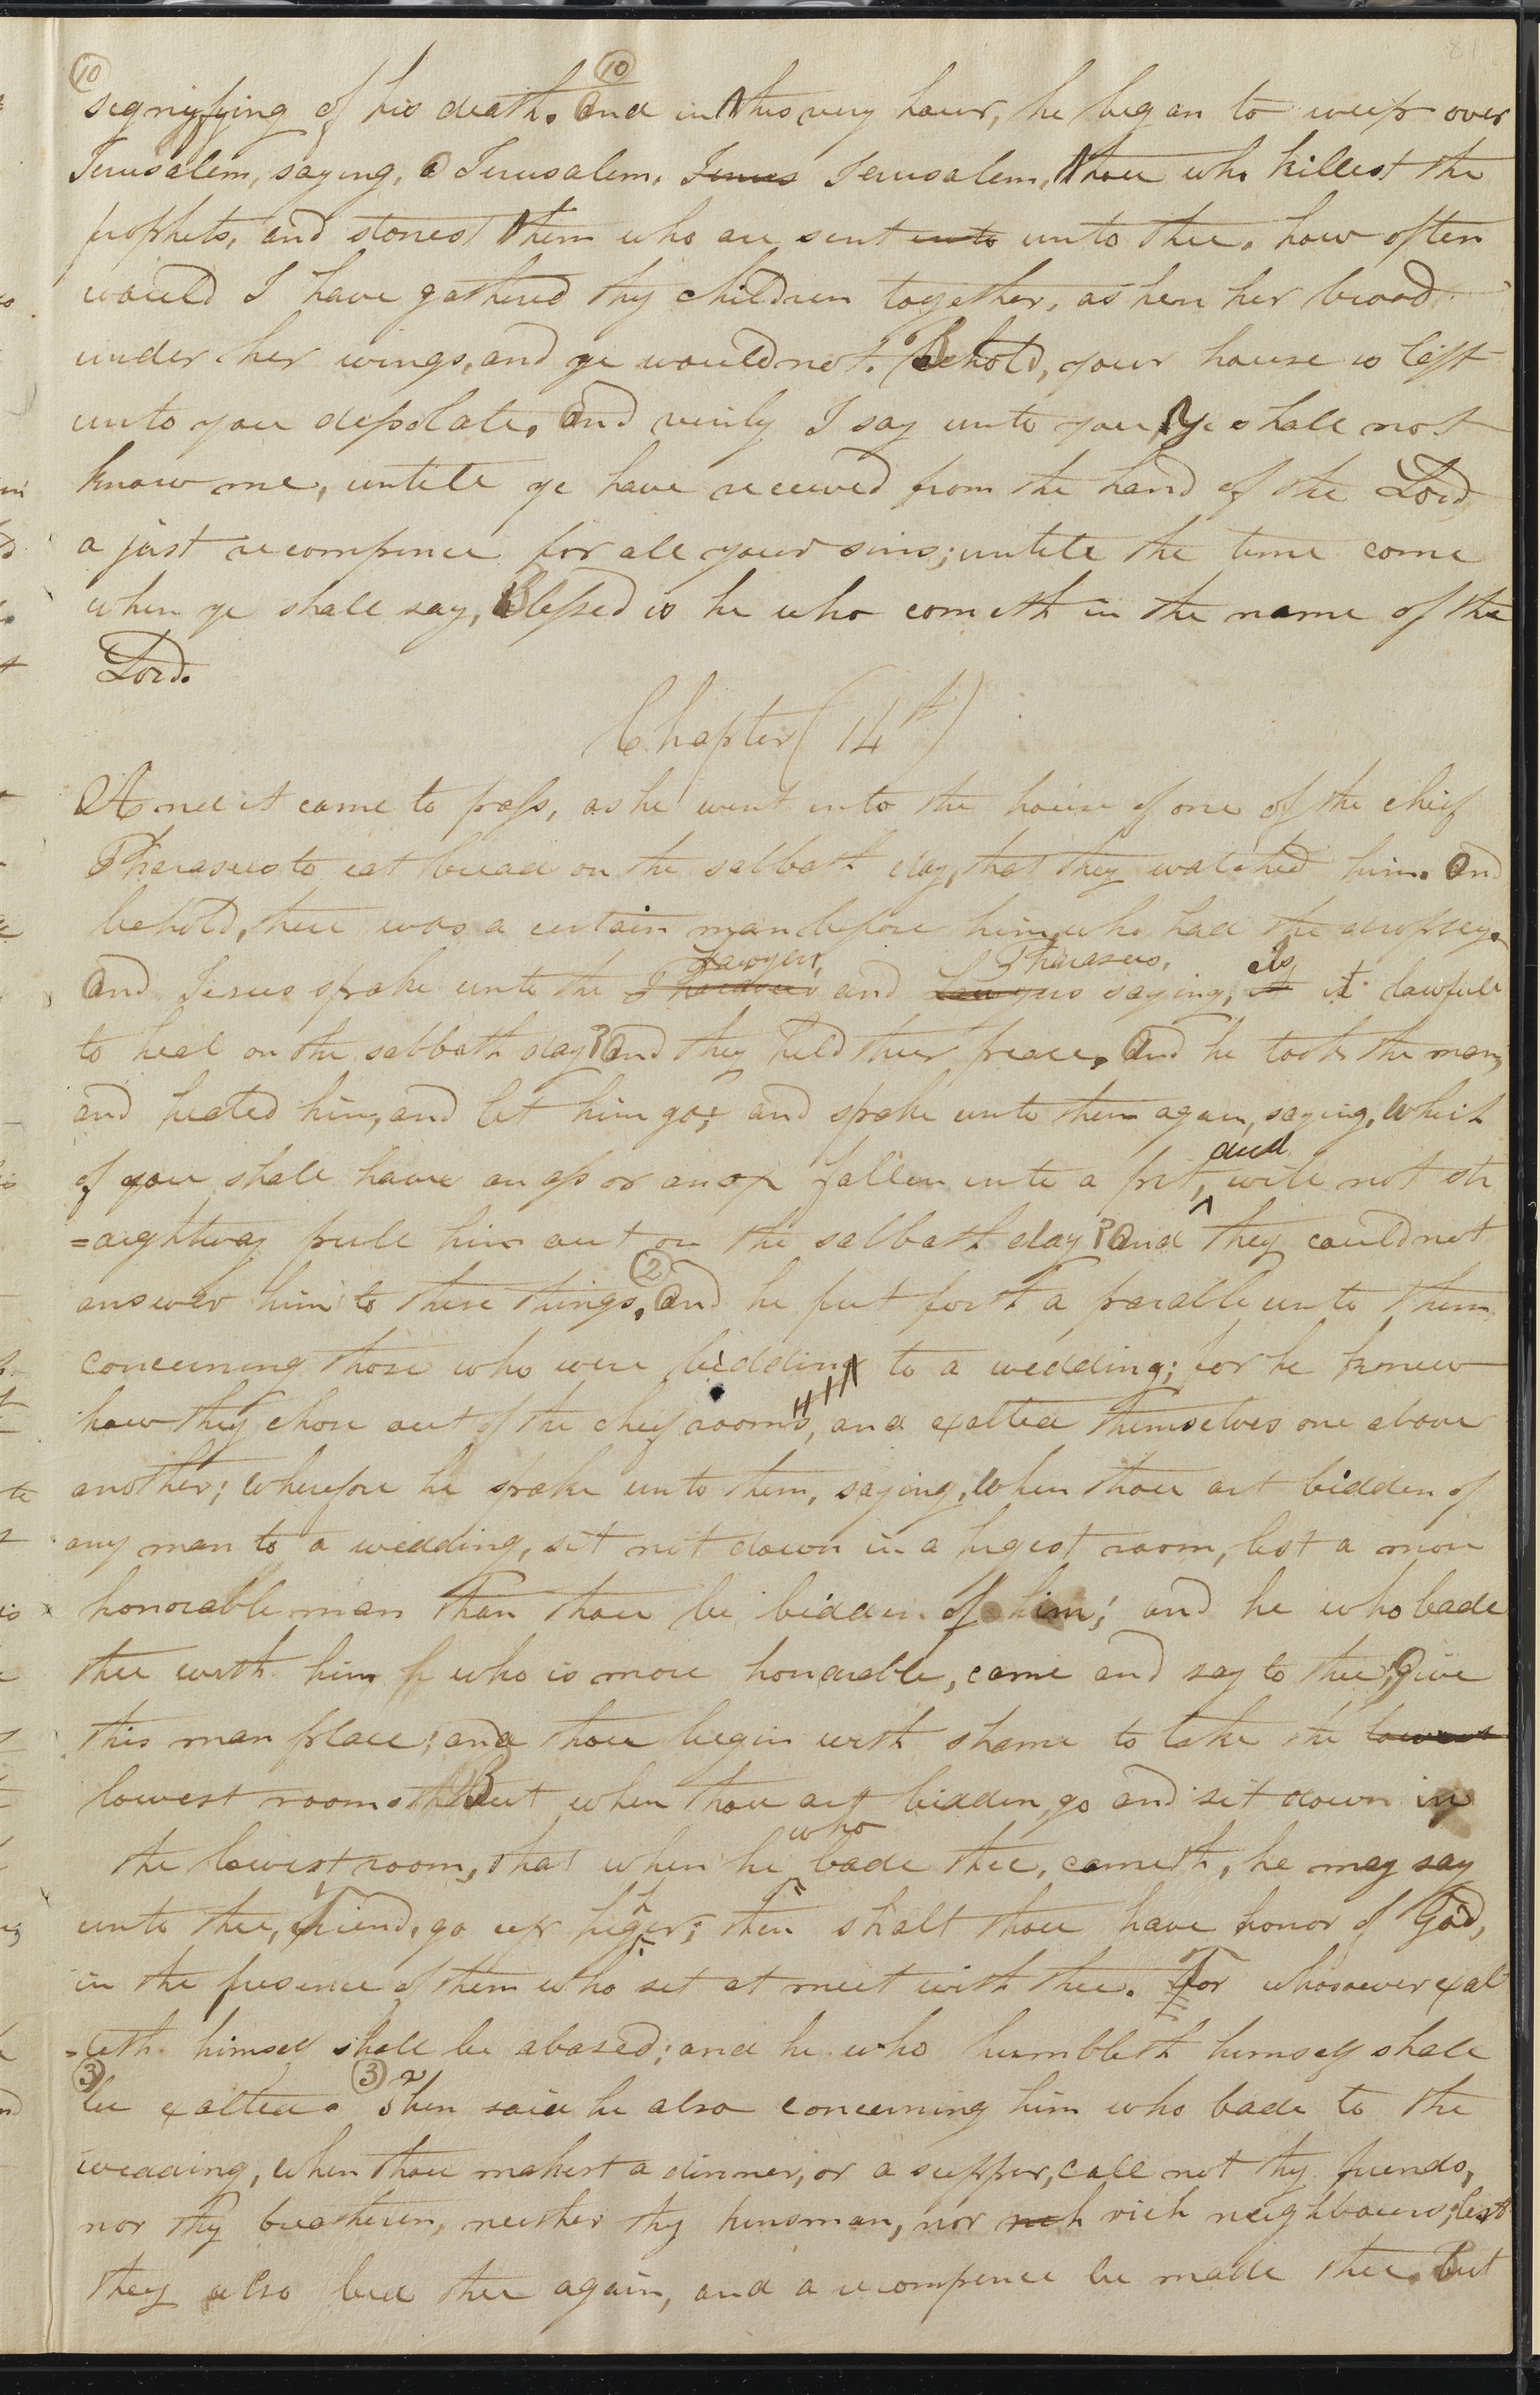 81
10 10
signifying of his death. And in this very hour, he began to weep over
Jerusalem, saying, O Jerusalem, Jerus Jerusalem, thou who killest the
prophets, and stonest them who are sent unto unto thee. how often
would I have gathered thy children together, as hen her brood
under her wings, and ye would not. Behold, your house is left
unto you desolate. And verily I say unto you, Ye shall not
know me, untill ye have received from the hand of the Lord
a just recompence for all your sins; untill the time come
when ye shall say, Blessed is he who cometh in the name of the
Lord.
Chapter (14th)
And it came to pass, as he went into the house of one of the chief
Pharasees to eat bread on the sabbath day, that they watched him. And
behold, there was a certain man before him, who had the dropsey.
Lawyers, Pharasees, is
And Jesus spake unto the Pharasees and Lawyers saying, it it lawfull
to heal on the sabbath day? And they held their peace. And he took the man,
and healed him, and let him go; and spake unto them again, saying, Which
and
of you shall have an ass or an ox fallen into a pit, will not str
=aightway pull him out on the sabbath day? And they could not
2
answer him to these things. And he put forth a parable unto them
concerning those who were bidding to a wedding; for he knew
how they chose out of the chief rooms, and exalted themselves one above
another; wherefore he spake unto them, saying, When thou art bidden of
any man to a wedding, sit not down in a higest room, lest a more
honorable man than thou be bidden of him; and he who bade
thee with him who is more honorable, come and say to thee; Give
this man place; and thou begin with shame to take the lowest
lowest room. But when thou art bidden, go and sit down in
who
the lowest room, that when he bade thee, cometh, he may say
h
unto thee, Friend, go up higer; then shalt thou have honor of God,
in the presence of them who set at meet with thee. For whosoever exal
=teth himself shall be abased; and he who humbleth himself shall
3 3
be exalted. Then said he also concerning him who bade to the
wedding, when thou makest a dinner, or a supper, call not thy friends,
nor thy breatheren, neither thy kinsman, nor rich rich neighbours; lest
they also bid thee again, and a recompence be made thee. But